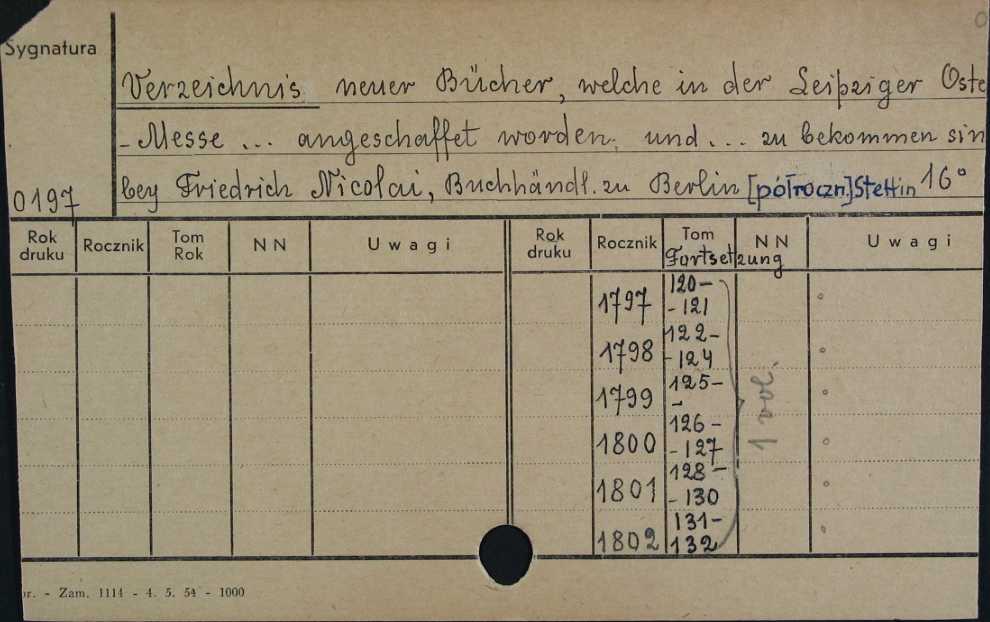 Sygnatura
Verzeichnis neuer Bücher, welche in der Leipziger Oste
-Messe ... angeschaffet worden, und ... zu bekommen sin
0197 bey Friedrich Nicolai, Buchhändl. zu Berlin [półroczn.] Stettin 16°
Rok druku Rocznik Tom Rok NN Uwagi Rok druku Rocznik Tom NN Uwagi
Fortsetzung
1797 120-
-121
1798 122-
-124
1799 125-
-
1 vol.
1800 126-
-127
1801 128-
-130
1802 131-
132
r. - Zam. 1114 - 4. 5. 54 - 1000